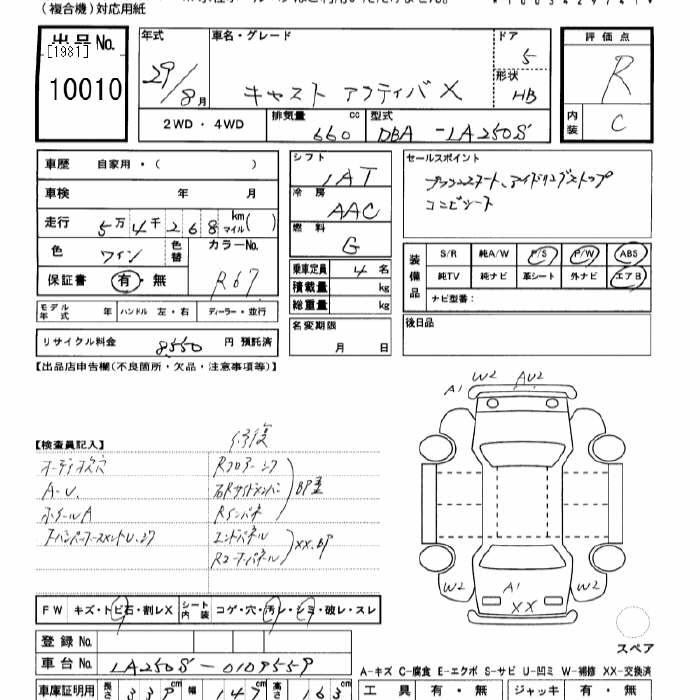 (複合機)対応用紙
出品No. 年式 車名・グレード ドア 評価点
[1981]
10010 29/8月 キャスト アクティバX 5 形状 HB R
2WD・4WD 排気量 660 cc 型式 DBA-LA250S 内装 C
車歴 自家用・( )
車検 年 月
走行 5万4千268 km マイル( )
色 ワイン 色替 カラーNo. R67
保証書 有・無
モデル年式 年 ハンドル 左・右 ディーラー・並行
リサイクル料金 8550 円 預託済
シフト IAT
冷房 AAC
燃料 G
乗車定員 4 名
積載量 kg
総重量 kg
名変期限 月 日
セールスポイント
プッシュスタート、アイドリングストップ
コンビシート
装備品 S/R 純A/W P/S P/W ABS
純TV 純ナビ 革シート 外ナビ エアB
ナビ型番:
後日品
【出品店申告欄(不良箇所・欠品・注意事項等)】
【検査員記入】 修復
オーディオ欠穴 Rフロアー
A-U. 右Rサイドメンバー BP歪
ホイールA Rインパネ
エンドパネル
Rコーナーパネル XX.BP
A1 W2 AU2
W2 A1 XX W2
FW キズ・トビ石・割レX シート内装 コゲ・穴・汚レ・シミ・破レ・スレ
スペア
登録No.
車台No. LA250S-0109559
A-キズ C-腐食 E-エクボ S-サビ U-凹ミ W-補修 XX-交換済
車庫証明用 長さ 339 cm 幅 147 cm 高さ 163 cm 工具 有・無 ジャッキ 有・無